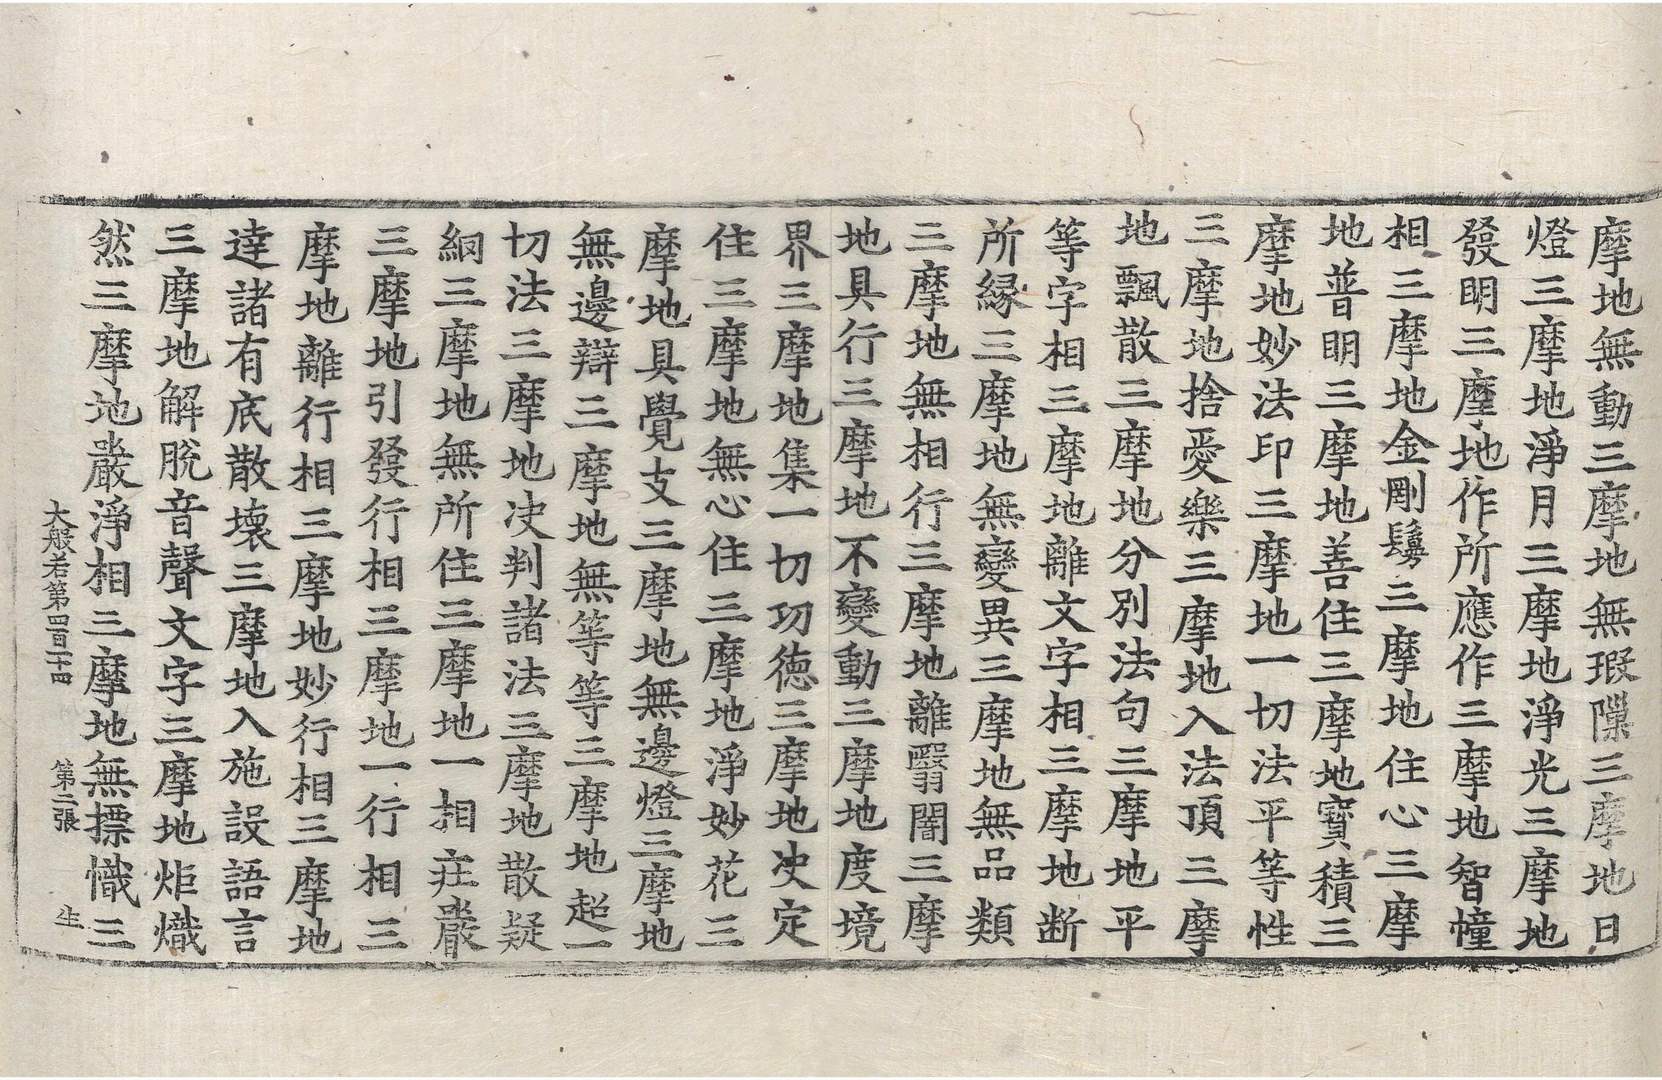 摩地無動三摩地無瑕隟三摩地日
燈三摩地淨月三摩地淨光三摩地
發明三摩地作所應作三摩地智幢
相三摩地金剛鬘三摩地住心三摩
地普明三摩地善住三摩地寶積三
摩地妙法印三摩地一切法平等性
三摩地捨愛樂三摩地入法頂三摩
地飄散三摩地分別法句三摩地平
等字相三摩地離文字相三摩地断
所緣三摩地無變異三摩地無品類
三摩地無相行三摩地離翳闇三摩
地具行三摩地不變動三摩地度境
界三摩地集一切功德三摩地决定
住三摩地無心住三摩地淨妙花三
摩地具覺支三摩地無邊燈三摩地
無邊辯三摩地無等等三摩地超一
切法三摩地决判諸法三摩地散疑
網三摩地無所住三摩地一相莊嚴
三摩地引發行相三摩地一行相三
摩地離行相三摩地妙行相三摩地
達諸有底散壞三摩地入施設語言
三摩地解脫音聲文字三摩地炬熾
然三摩地嚴淨相三摩地無摽幟三
大般若第四百十四 第二張 生